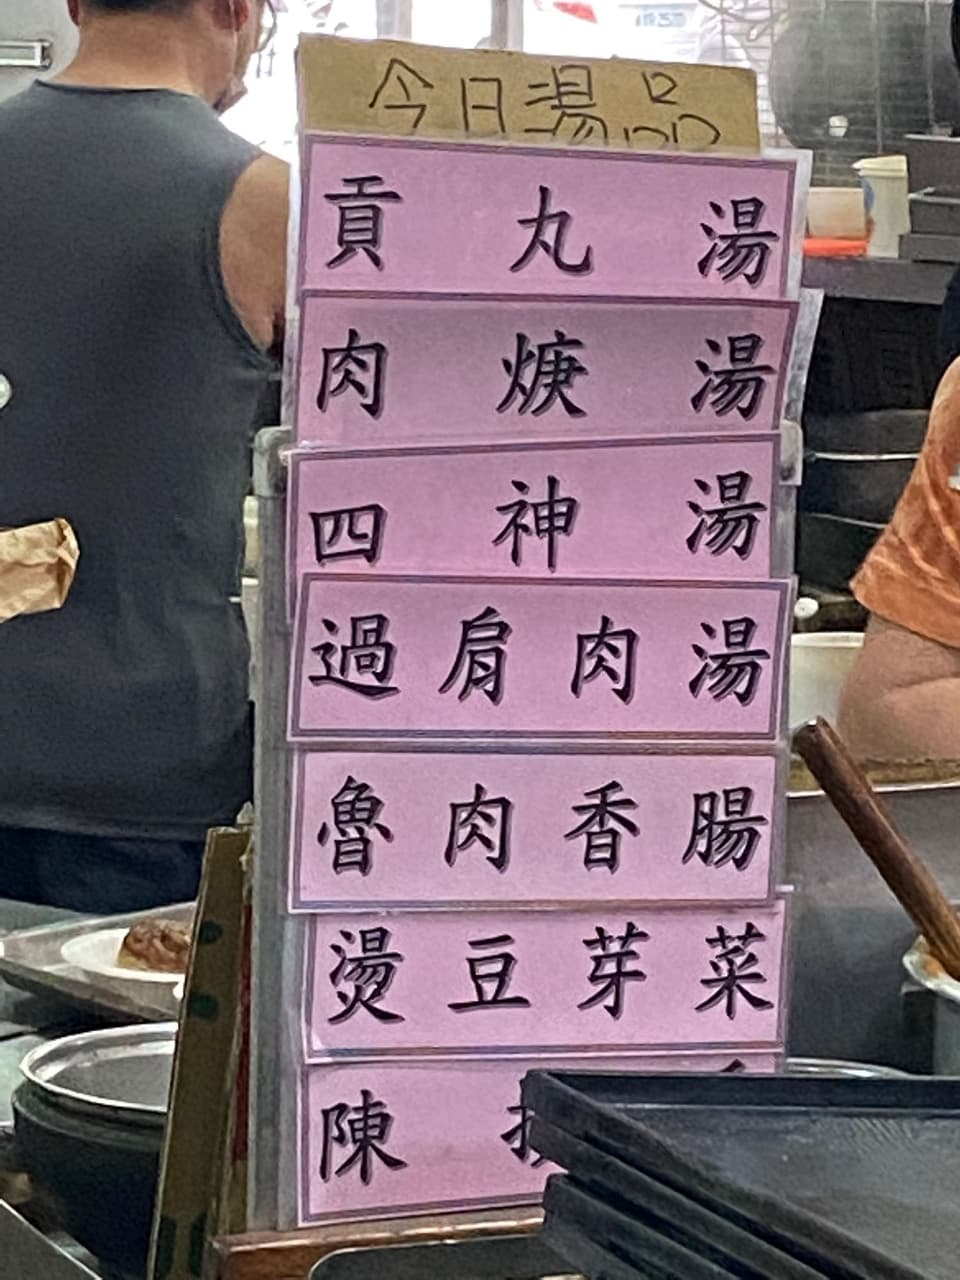 今日湯品
貢丸湯
肉焿湯
四神湯
過肩肉湯
魯肉香腸
燙豆芽菜
陳